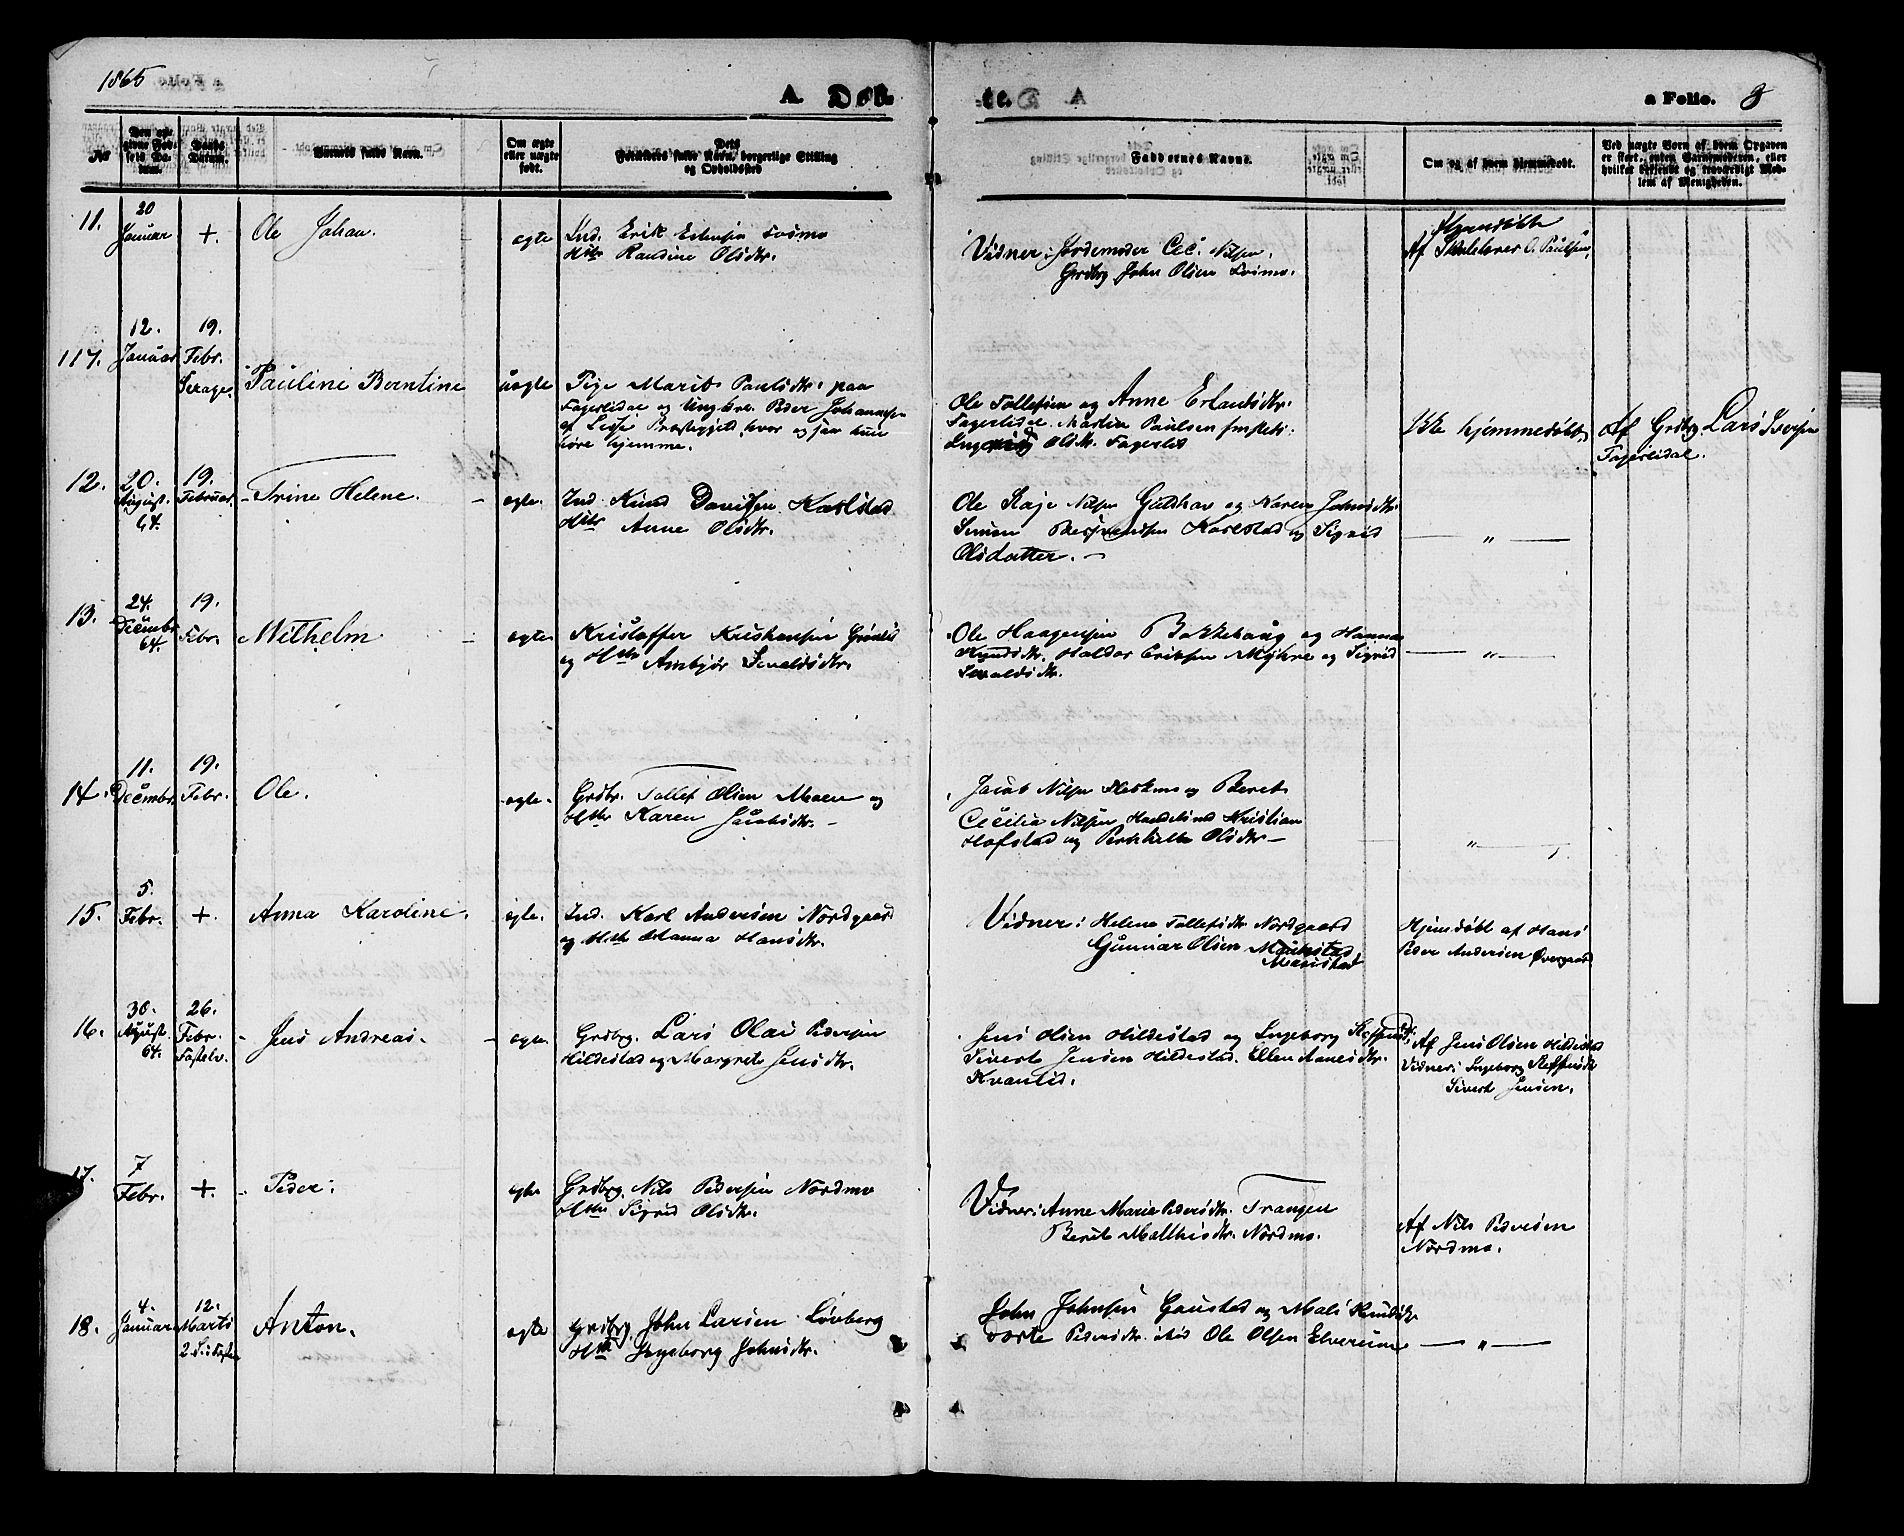 1865
A. Døb- te. a Folio. 8
Nr
Den opgivne Fødsels Datum.
Daabs Datum.
Barnets fulde Navn.
Om ægte eller uægte født.
Dets Forældres fulde Navn, borgerlige Stilling og Opholdssted
Faddernes Navne.
Om og af hvem hjemmedøbt.
Ved uægte Børn af hvem Opgaven er skeet, enten Barnemoderen, eller hvilket bekjendt og troværdigt Medlem af Menigheden.
11.
20 Januar
+.
Ole Johan.
ægte
Ind. Erik Estensen
Hstr Randine Olsdtr.
Vidner: Jordemoder Cec. Nilsen.
Grdbrg John Olsen
Hjemdöbt
Af Skolelærer O. Paulsen,
117.
12. Januar
19. Febr.
Pauline Berntine
uægte
Pige Marit Paulsdtr. paa
Fagerlidal og Ungkar. Peder Johannesen
af Lesje Præstegjeld, hvor og saa hun
höre hjemme.
Ole Tollefsen og Anne Erlandsdtr.
Fagerlidal. Martin Paulsen
Olsdtr. Fagerlid
Ikke hjemmedøbt
Af Grdbrg. Lars Iversen
Fagerlidal.
12.
20. August. 64.
19. Februar
Trine Helene.
ægte.
Ind. Knud Davidsen Karlstad
Hstr Anne Olsdtr.
Ole Staje Nilsen Guldhav og Karen Johnsdtr.
Simon Karlstad og Sigrid
Olsdatter. -
— " —
13.
24. Decembr 64.
19. Febr.
Wilhelm
ægte
Kristoffer Kristiansen
og Hstr Ambjör Sivaldsdtr.
Ole Haagensen Bakkehaug og Hanna
Knudsdtr. Haldor Eriksen Myhre og Sigrid
Sivaldsdtr.
— " —
14.
11. Decembr.
19. Febr.
Ole.
ægte.
Grdbr. Tollef Olsen Moen og
Hstr Karen Jacobsdtr. -
Jacob Nilsen og Beret
Cecilia Nilsen Kristian
Hofstad og Olsdtr -
"
15.
5. Febr.
+.
Anna Karoline.
ægte.
Ind. Karl Andersen Nordgaard
og Hstr Johanna Hansdtr.
Vidner: Helena Tollefsdtr Nordgaard
Gunnar Olsen
Hjemdøbt af Hans
Peder Andersen Øvergaard
16.
30. August 64.
26. Febr. Fastelv.
Jens Andreas.
ægte
Grdbrg. Lars Olai Pedersen
Hildestad og Margrete Jensdtr.
Jens Olsen Hildestad og Ingeborg Steffensdtr.
Sivert Jensen Hildestad. Ellen Annesdtr.
Kvanlid.
Af Jens Olsen Hildestad
Vidner: Ingeborg Steffensdtr
Sivert Jensen.
17.
7 Febr.
+.
Peder.
ægte
Grdbrg. Nils Pedersen Nordmo
Hstr Sigrid Olsdtr.
Vidner: Anne Marie Pedersdtr. Trangen
Berit Mathisdtr. Nordmo.
Af Nils Pedersen
Nordmo.
18.
4. Januar
12. Marts
Anton.
ægte
Grdbrg. John Larsen Lövberg
Hstr Ingeborg Johnsdtr.
John Johnsen Gaustad og Mali Knudsdtr
Dorte Pedersdtr. Ole Olsen Elverum
— " —